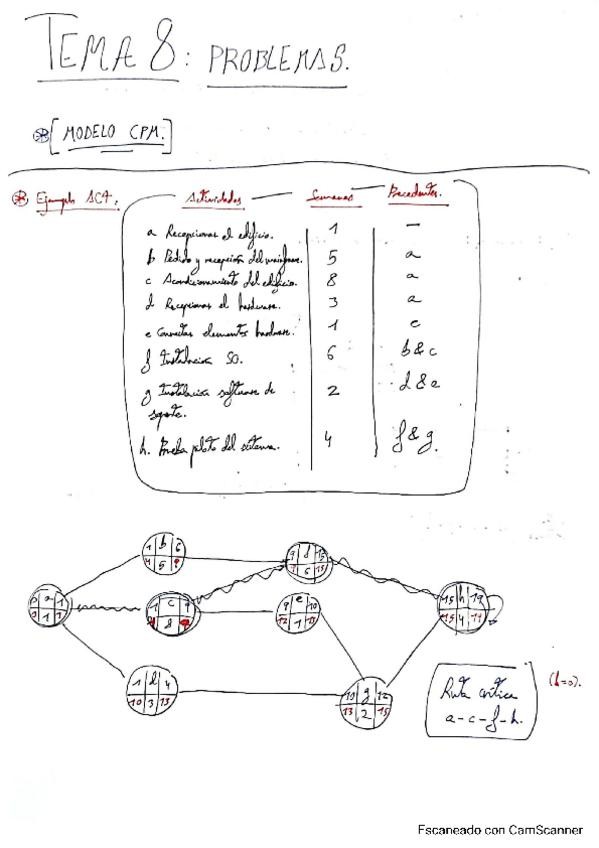 TEMA 8: PROBLEMAS.
[MODELO CPM.]
Ejemplo ACT. Actividades Semanas Precedentes.
a Recepcionar el edificio. 1 —
b Pedido y recepción del mainframe. 5 a
c Acondicionamiento del edificio. 8 a
d Recepcionar el hardware. 3 a
e Conectar elementos hardware. 1 c
f Instalación SO. 6 b & c
g Instalación software de 2 d & e
soporte.
h. Prueba piloto del sistema. 4 f & g.
1 b 6
4 5 9
9 f 15
9 6 15
0 a 1
0 1 1
1 c 9
1 8 9
9 e 10
12 1 13
15 h 19
15 4 19
1 d 4
10 3 13
10 g 12
13 2 15
Ruta crítica
a-c-f-h.
(h=0).
Escaneado con CamScanner